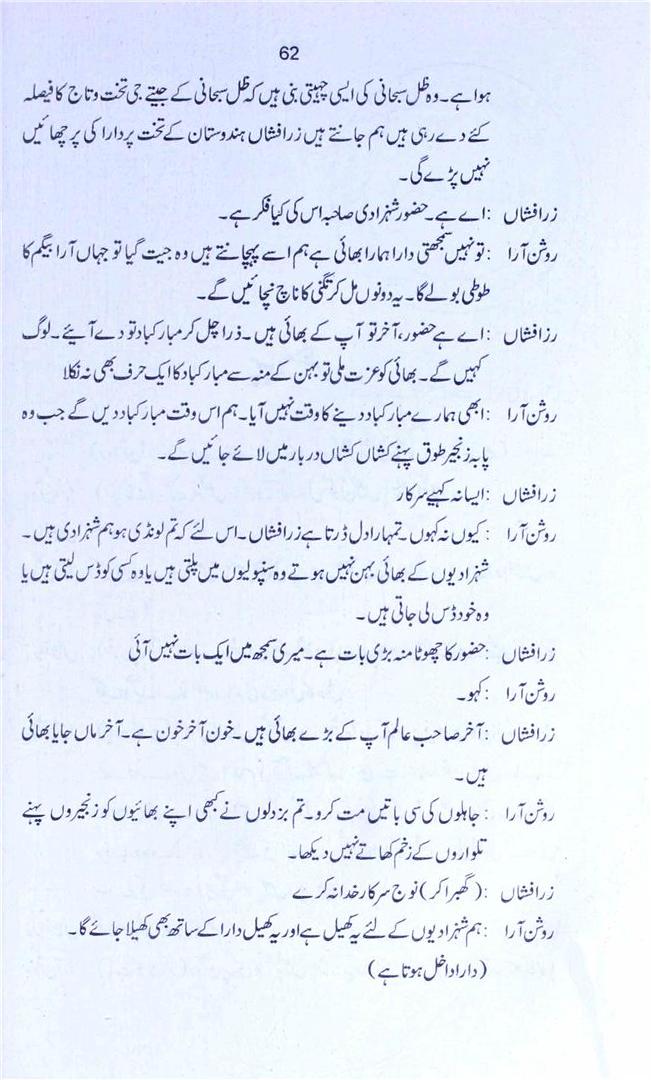 62
ہوا ہے۔ وہ ظل سبحانی کی ایسی چہیتی بنی ہیں کہ ظل سبحانی کے جیتے جی تخت و تاج کا فیصلہ
کئے دے رہی ہیں ہم جانتے ہیں زرافشاں ہندوستان کے تخت پر دارا کی پرچھائیں
نہیں پڑے گی۔
زرافشاں :اے ہے۔ حضور شہزادی صاحبہ اس کی کیا فکر ہے۔
روشن آرا :تو نہیں سمجھتی دارا ہمارا بھائی ہے ہم اسے پہچانتے ہیں وہ جیت گیا تو جہاں آرا بیگم کا
طوطی بولے گا۔ یہ دونوں مل کر تگنی کا ناچ نچائیں گے۔
رزافشاں :اے ہے حضور، آخر تو آپ کے بھائی ہیں۔ ذرا چل کر مبارکباد تو دے آئیے۔ لوگ
کہیں گے۔ بھائی کو عزت ملی تو بہن کے منہ سے مبارکباد کا ایک حرف بھی نہ نکلا
روشن آرا :ابھی ہمارے مبارکباد دینے کا وقت نہیں آیا۔ ہم اس وقت مبارکباد دیں گے جب وہ
پابہ زنجیر طوق پہنے کشاں کشاں دربار میں لائے جائیں گے۔
زرافشاں :ایسا نہ کہیے سرکار
روشن آرا :کیوں نہ کہوں۔ تمہارا دل ڈرتا ہے زرافشاں۔ اس لئے کہ تم لونڈی ہو ہم شہزادی ہیں۔
شہزادیوں کے بھائی بہن نہیں ہوتے وہ سنپولیوں میں پلتی ہیں یا وہ کسی کو ڈس لیتی ہیں یا
وہ خود ڈس لی جاتی ہیں۔
زرافشاں :حضور کا چھوٹا منہ بڑی بات ہے۔ میری سمجھ میں ایک بات نہیں آئی
روشن آرا :کہو۔
زرافشاں :آخر صاحب عالم آپ کے بڑے بھائی ہیں۔ خون آخر خون ہے۔ آخر ماں جایا بھائی
ہیں۔
روشن آرا :جاہلوں کی سی باتیں مت کرو۔ تم بزدلوں نے کبھی اپنے بھائیوں کو زنجیروں پہنے
تلواروں کے زخم کھاتے نہیں دیکھا۔
زرافشاں :(گھبرا کر) نوج سرکار خدا نہ کرے
روشن آرا :ہم شہزادیوں کے لئے یہ کھیل ہے اور یہ کھیل دارا کے ساتھ بھی کھیلا جائے گا۔
(دارا داخل ہوتا ہے)